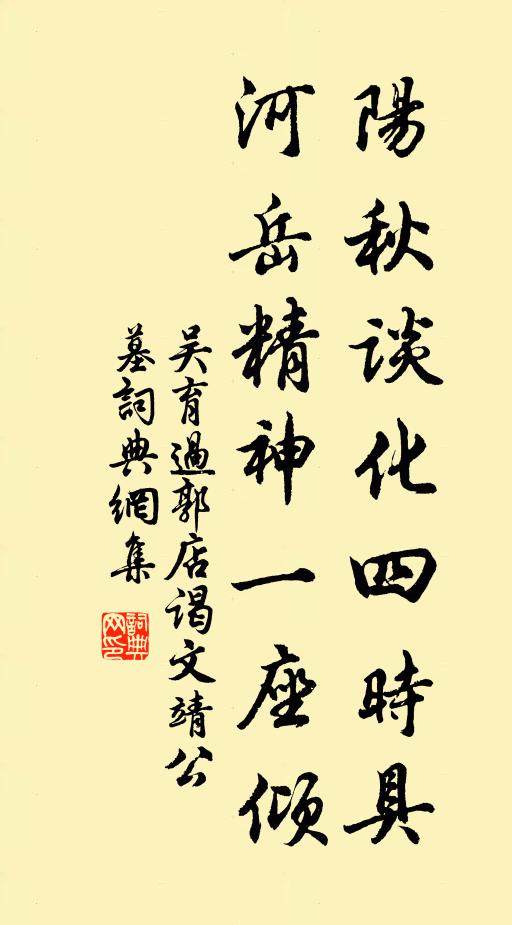 陽秋談化四時具
河岳精神一座傾
吴育過郭店谒文靖公
墓詞典網集
詞典
网印